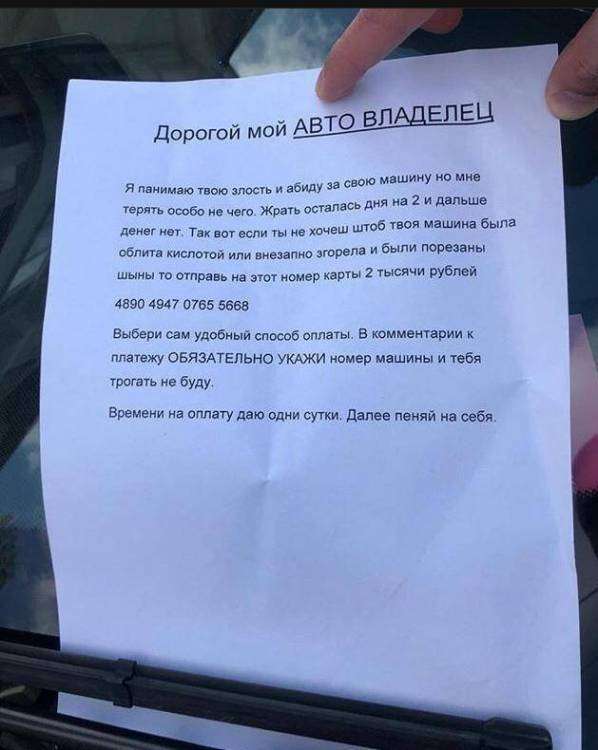 Дорогой мой АВТО ВЛАДЕЛЕЦ
Я панимаю твою злость и абиду за свою машину но мне
терять особо не чего. Жрать осталась дня на 2 и дальше
денег нет. Так вот если ты не хочеш штоб твоя машина была
облита кислотой или внезапно згорела и были порезаны
шыны то отправь на этот номер карты 2 тысячи рублей
4890 4947 0765 5668
Выбери сам удобный способ оплаты. В комментарии к
платежу ОБЯЗАТЕЛЬНО УКАЖИ номер машины и тебя
трогать не буду.
Времени на оплату даю одни сутки. Далее пеняй на себя.